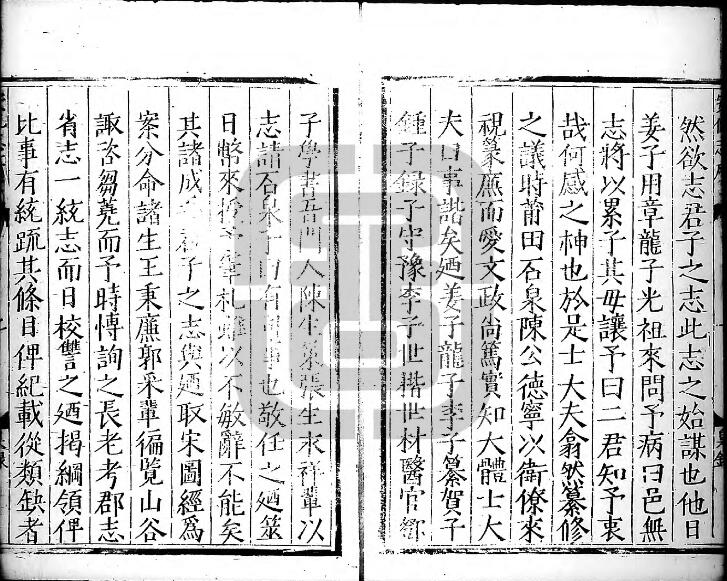 然欲志君子之志此志之始謀也他日
姜子用章龍子光祖來問予病曰邑無
志將以累子其毋讓予曰二君知予衷
哉何感之神也於是士大夫翕然纂修
之議時莆田石泉陳公德寧以衛僚來
視篆廉而愛文政尚篤實知大體士大
夫曰事諧矣廼姜子龍子李子纂賀子
鍾子錄子守豫李子世揩世材醫官
子學書吾門人陳生策張生永祥輩以
志請石泉子曰有是事也敬任之廼筮
日幣來授予筆札雖以不敏辭不能矣
其諸成君子之志與廼取宋圖經為
案分命諸生王秉廉郭采輩徧覧山谷
諏咨芻蕘而予時博詢之長老考郡志
省志一統志而日校讐之廼揭綱領俾
比事有統疏其條目俾紀載從類缺者